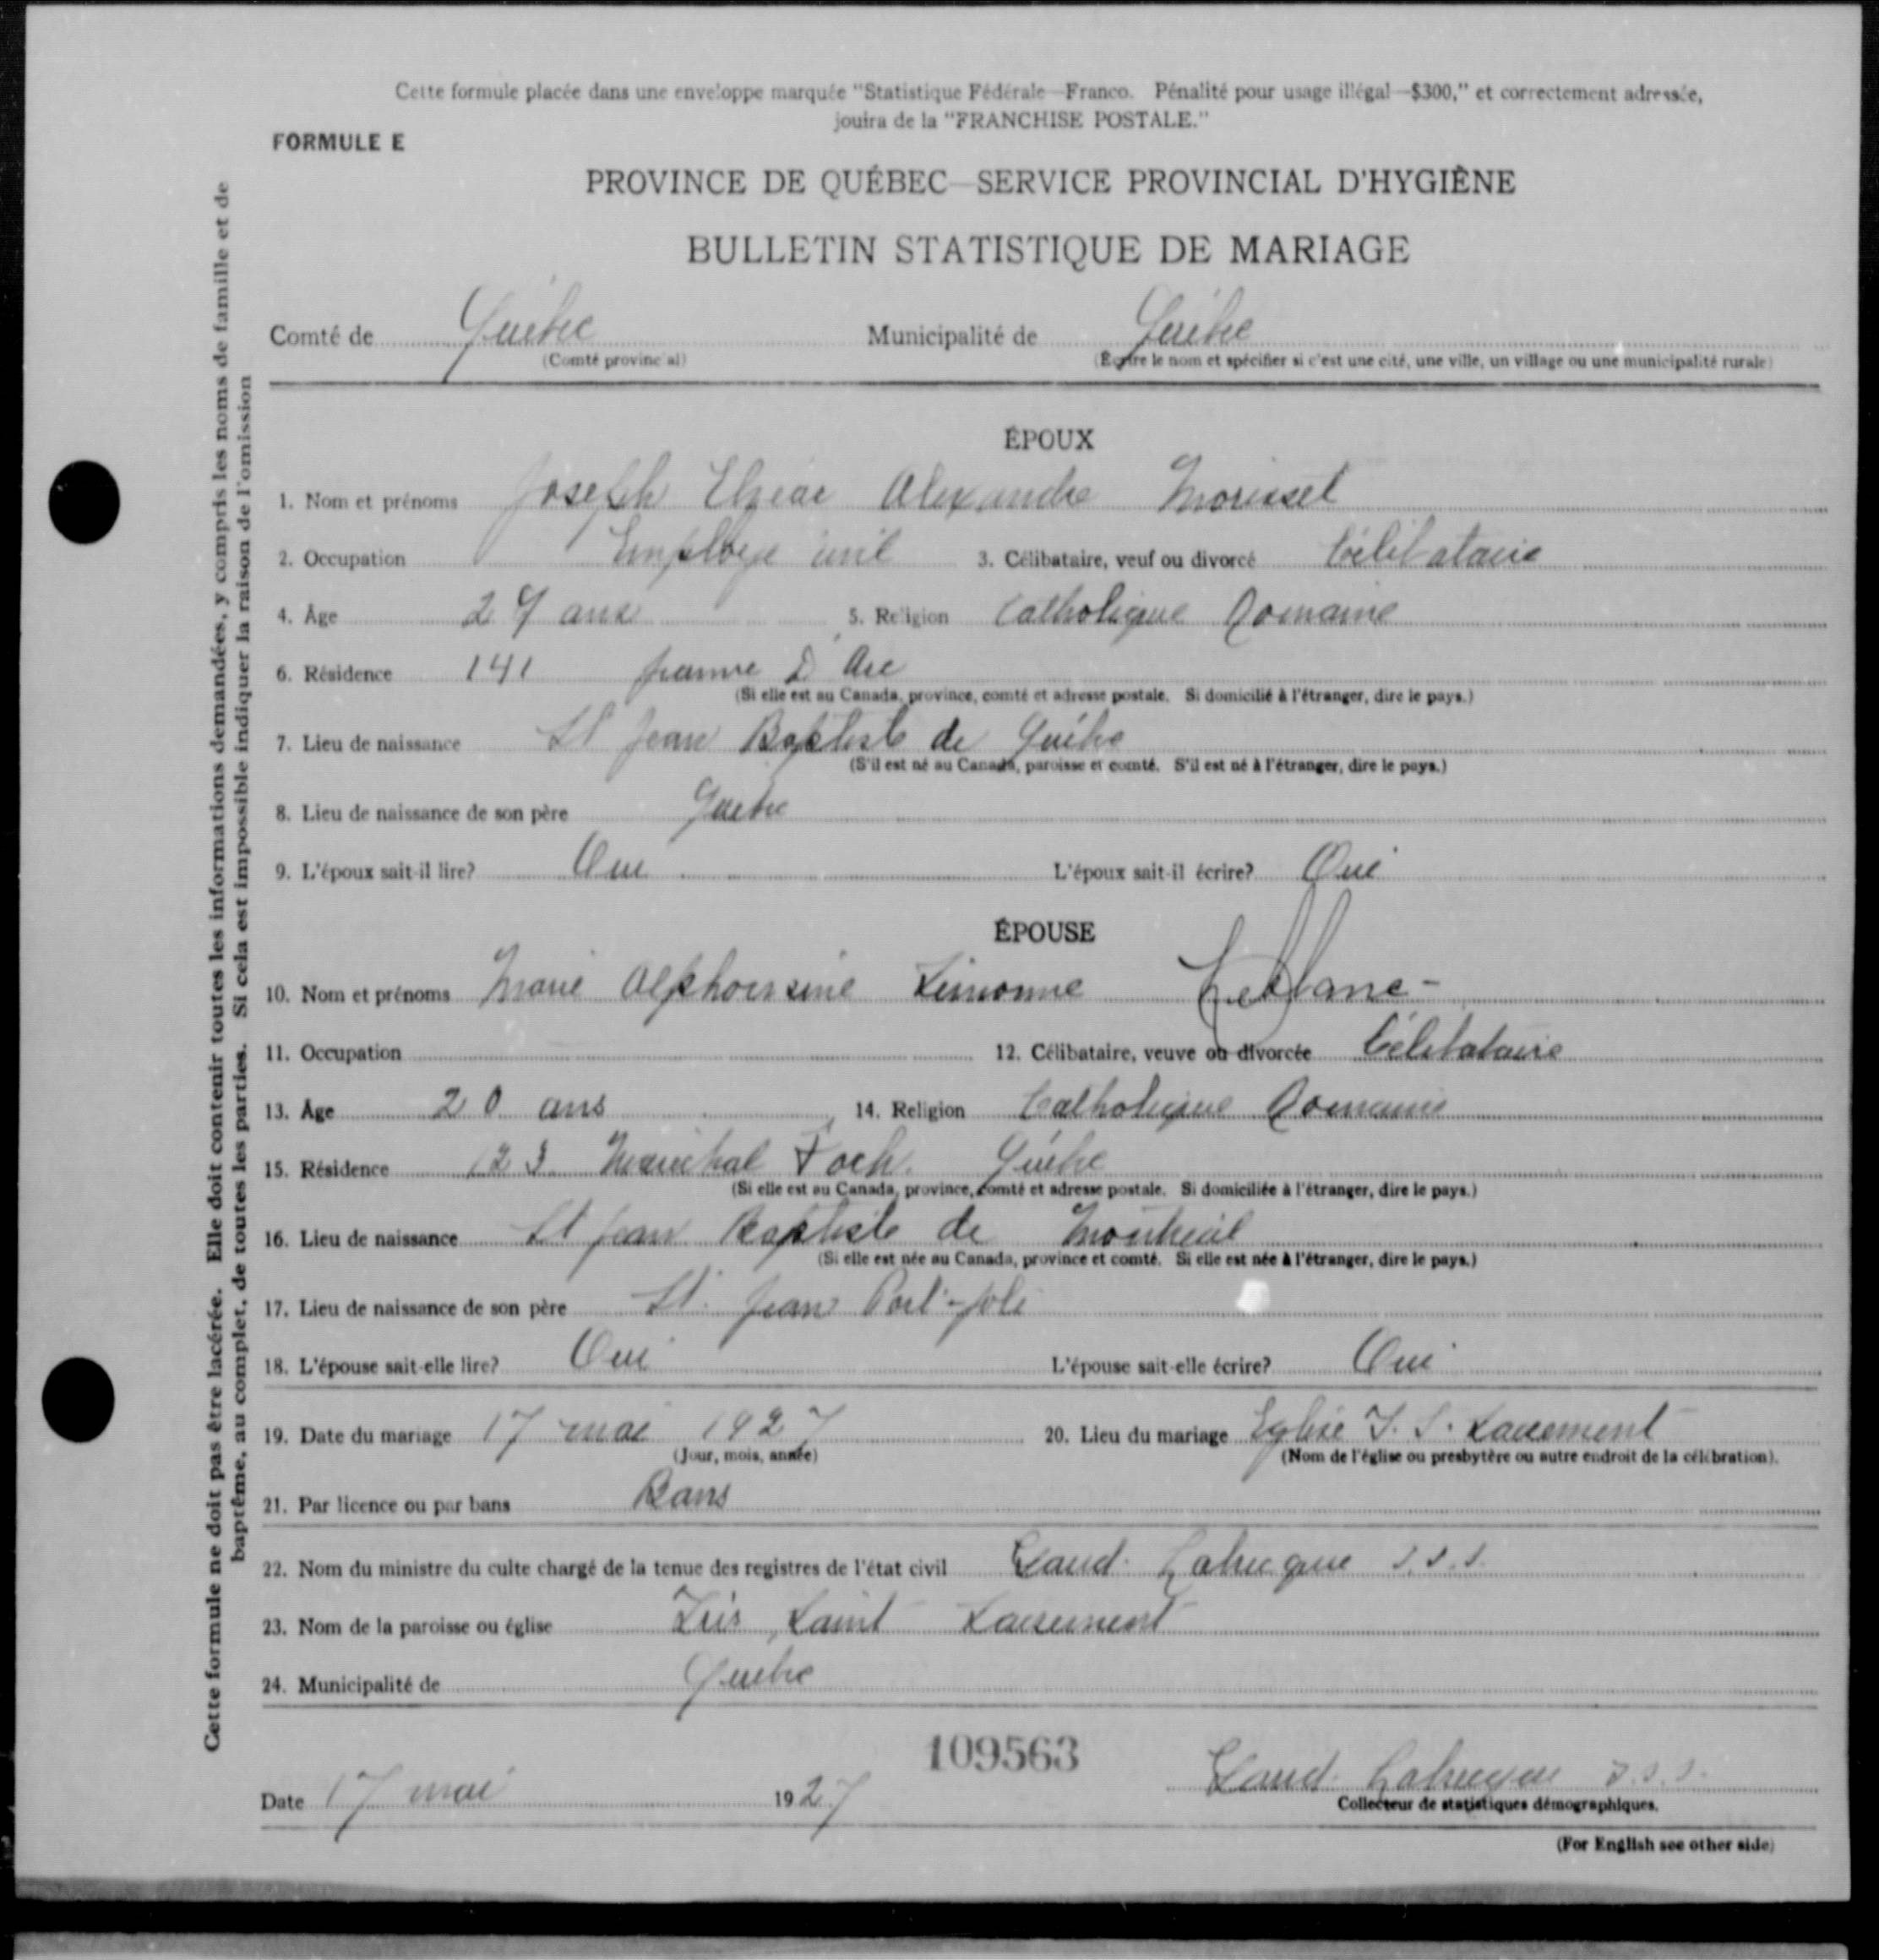 Cette formule placée dans une enveloppe marquée "Statistique Fédérale—Franco. Pénalité pour usage illégal—$300," et correctement adressée,
jouira de la "FRANCHISE POSTALE."
FORMULE E
PROVINCE DE QUÉBEC—SERVICE PROVINCIAL D'HYGIÈNE
BULLETIN STATISTIQUE DE MARIAGE
Comté de Québec Municipalité de Québec
(Comté provincial) (Écrire le nom et spécifier si c'est une cité, une ville, un village ou une municipalité rurale)
ÉPOUX
1. Nom et prénoms Joseph Elzear Alexandre Morisset
2. Occupation Employe civil 3. Célibataire, veuf ou divorcé Célibataire
4. Âge 27 ans 5. Religion Catholique Romaine
6. Résidence 141 Jeanne D'Arc
(Si elle est au Canada, province, comté et adresse postale. Si domicilié à l'étranger, dire le pays.)
7. Lieu de naissance St Jean Baptiste de Québec
(S'il est né au Canada, paroisse et comté. S'il est né à l'étranger, dire le pays.)
8. Lieu de naissance de son père Quebec
9. L'époux sait-il lire? Oui L'époux sait-il écrire? Oui
ÉPOUSE
10. Nom et prénoms Marie Alphonsine Simonne Leblanc -
11. Occupation 12. Célibataire, veuve ou divorcée Célibataire
13. Âge 20 ans 14. Religion Catholique Romaine
15. Résidence 123 Marechal Foch. Québec
(Si elle est au Canada, province, comté et adresse postale. Si domiciliée à l'étranger, dire le pays.)
16. Lieu de naissance St Jean Baptiste de Montreal
(Si elle est née au Canada, province et comté. Si elle est née à l'étranger, dire le pays.)
17. Lieu de naissance de son père St. Jean Port-Joli
18. L'épouse sait-elle lire? Oui L'épouse sait-elle écrire? Oui
19. Date du mariage 17 mai 1927 20. Lieu du mariage Eglise T. S. Sacrement
(Jour, mois, année) (Nom de l'église ou presbytère ou autre endroit de la célébration).
21. Par licence ou par bans Bans
22. Nom du ministre du culte chargé de la tenue des registres de l'état civil s.s.s.
23. Nom de la paroisse ou église Très Saint Sacrement
24. Municipalité de Quebec
109563
Date 17 mai 1927 s.s.s.
Collecteur de statistiques démographiques.
(For English see other side)
Cette formule ne doit pas être lacérée. Elle doit contenir toutes les informations demandées, y compris les noms de famille et de
baptême, au complet, de toutes les parties. Si cela est impossible indiquer la raison de l'omission